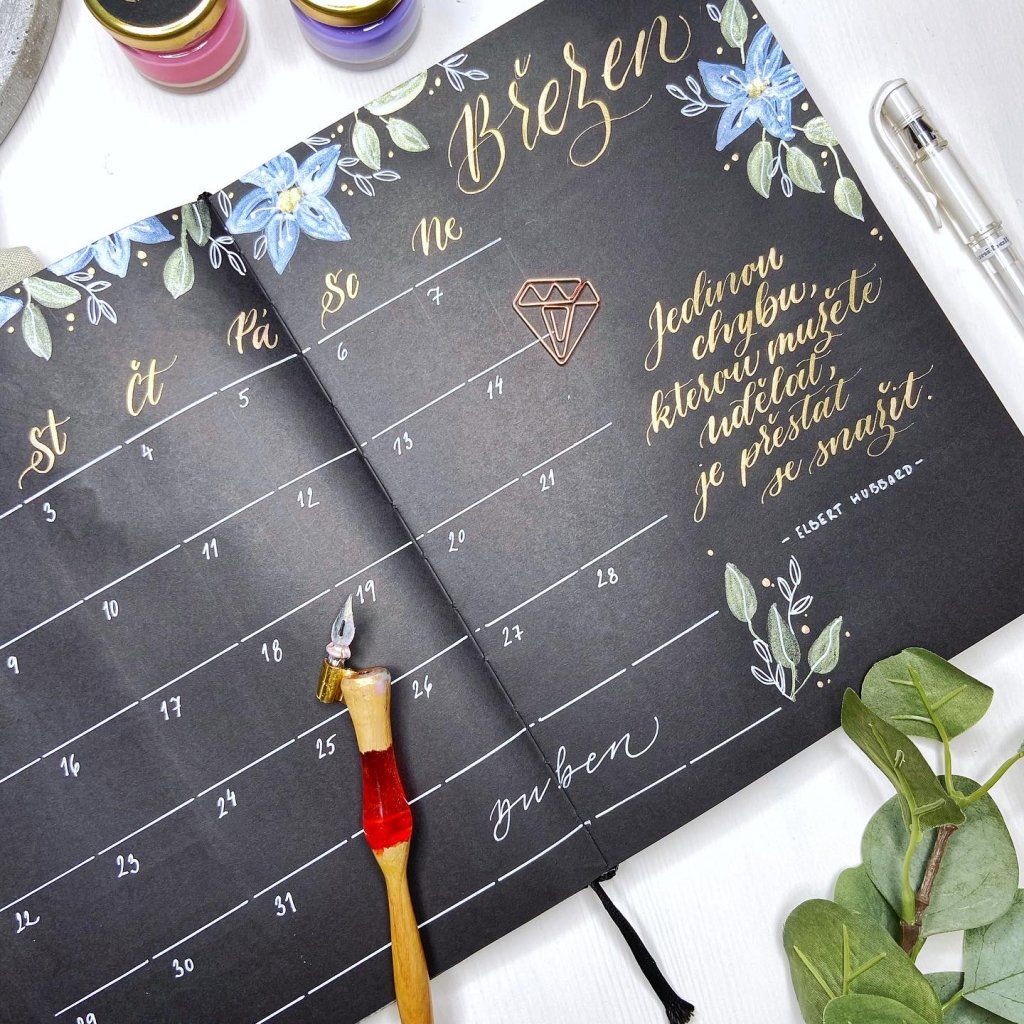 Březen
St Čt Pá So Ne
3 4 5 6 7
9 10 11 12 13 14
16 17 18 19 20 21
22 23 24 25 26 27 28
29 30 31
Duben
Jedinou
chybu,
kterou mužete
udělat,
je přestat
se snažit.
- ELBERT HUBBARD -